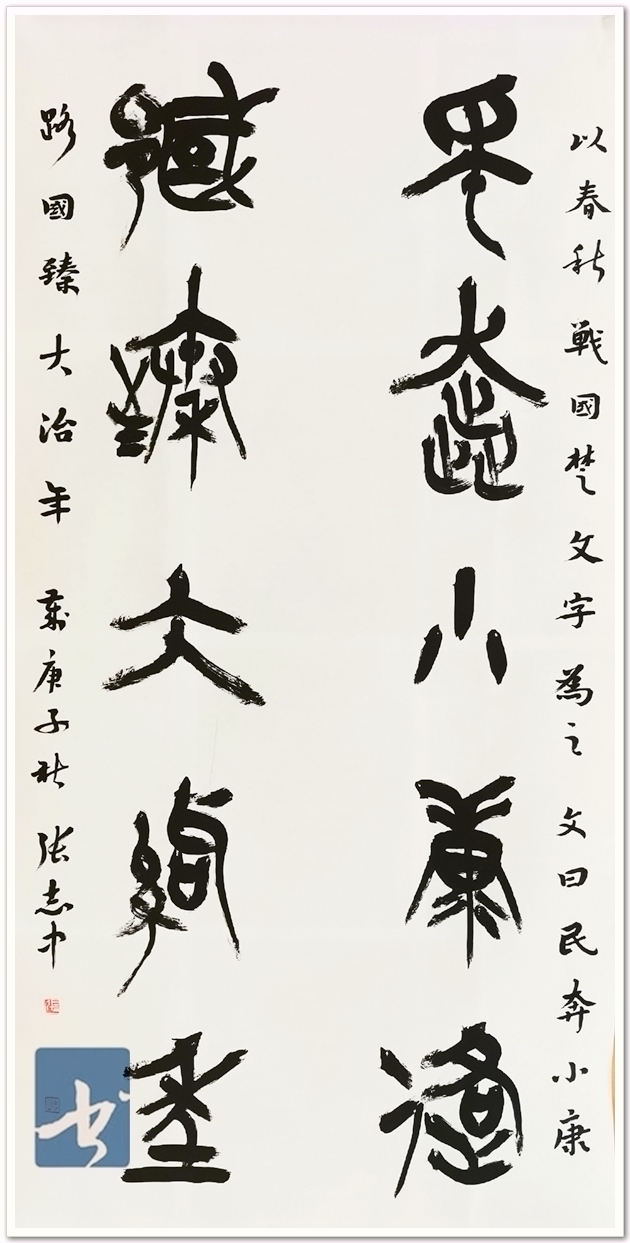 以春秋戰國楚文字為之 文曰民奔小康
民奔小康路
國臻大治年
路國臻大治年 歲庚子秋 張志中
书